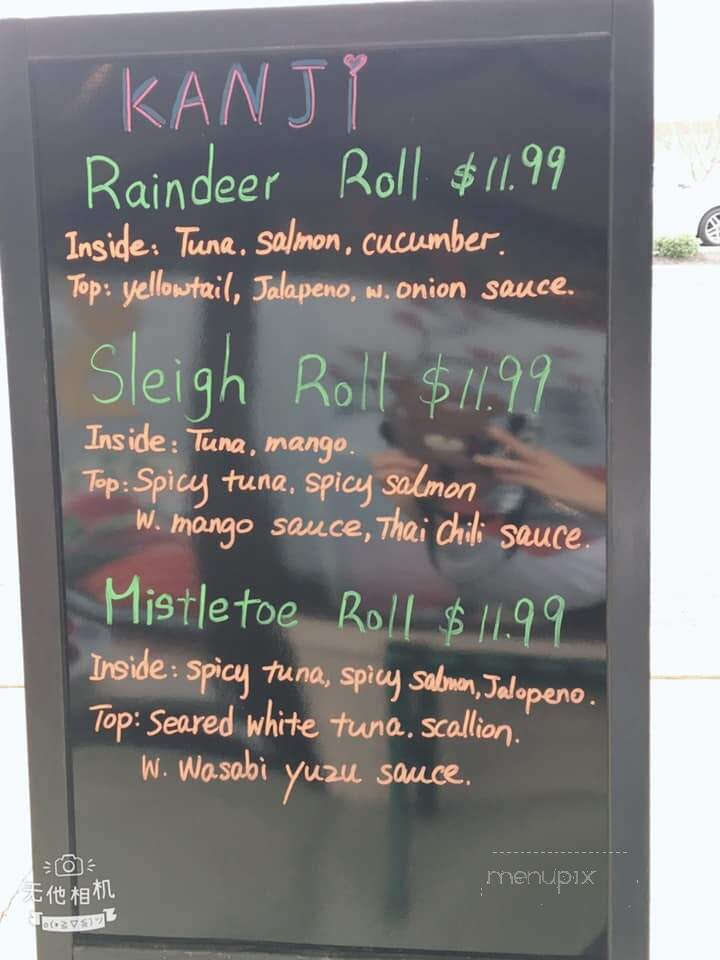 KANJI
Raindeer Roll $11.99
Inside: Tuna. Salmon. cucumber.
Top: yellowtail, Jalapeno, w. onion sauce.
Sleigh Roll $11.99
Inside: Tuna, mango.
Top: Spicy tuna. spicy salmon
w. mango sauce, Thai chili sauce.
Mistletoe Roll $11.99
Inside: spicy tuna, spicy salmon, Jalopeno.
Top: Seared white tuna. scallion.
w. Wasabi yuzu sauce.
menupix
无他相机